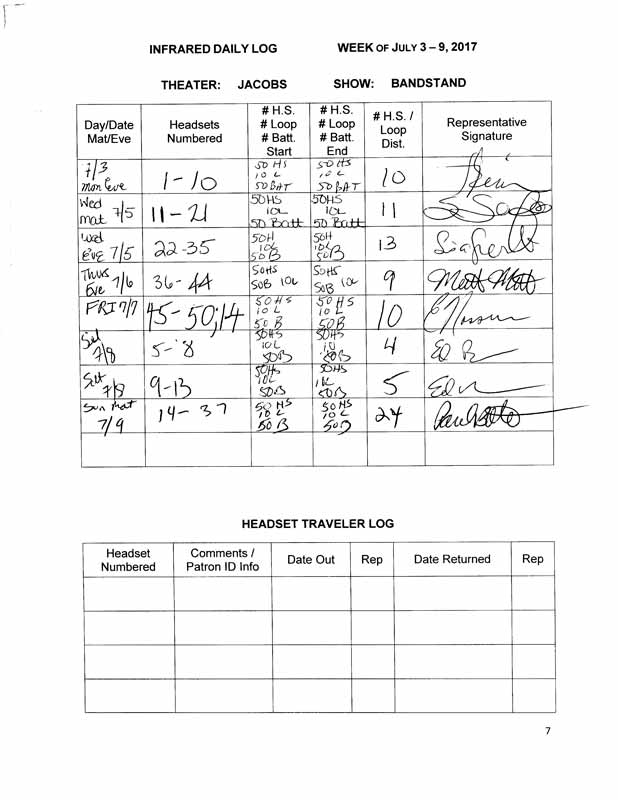 INFRARED DAILY LOG WEEK OF JULY 3 – 9, 2017
THEATER: JACOBS SHOW: BANDSTAND
Day/Date Mat/Eve Headsets Numbered # H.S. # Loop # Batt. Start # H.S. # Loop # Batt. End # H.S. / Loop Dist. Representative Signature
7/3 Mon Eve 1-10 50 HS 10 L 50 BAT 50 HS 10 L 50 BAT 10
Wed mat 7/5 11-21 50HS 10L 50 Batt 50HS 10L 50 Batt 11
Wed Eve 7/5 22-35 50H 10L 50B 50H 10L 50B 13
Thus Eve 7/6 36-44 50HS 50B 10L 50HS 50B 10L 9 Matt Mott
FRI 7/7 45-50;14 50HS 10L 50B 50HS 10L 50B 10
Sat 7/8 5-8 50HS 10L 50B 50HS 10 50B 4 Ed
Sat 7/8 9-13 50HS 10L 50B 50HS 10L 50B 5 Ed
Sun Mat 7/9 14-37 50HS 10L 50B 50HS 10L 50B 24
HEADSET TRAVELER LOG
Headset Numbered Comments / Patron ID Info Date Out Rep Date Returned Rep
7